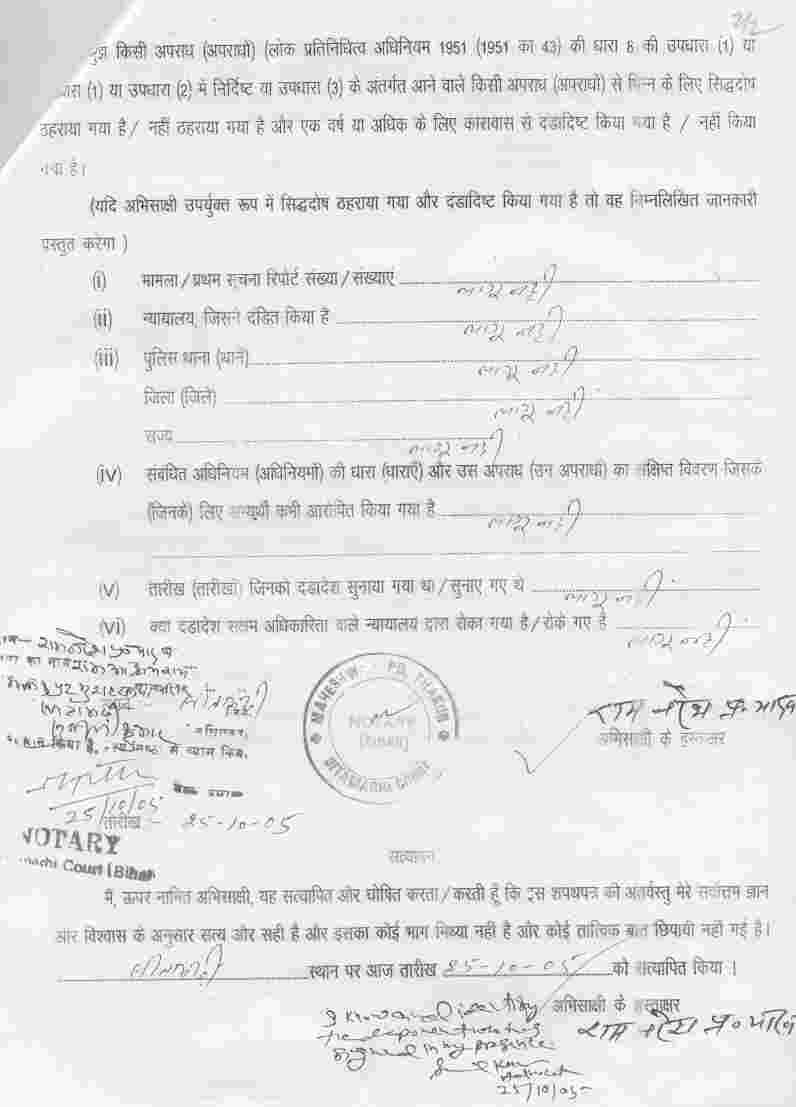 2/2
मुझे किसी अपराध (अपराधों) (लोक प्रतिनिधित्व अधिनियम 1951 (1951 का 43) की धारा 8 की उपधारा (1) या
धारा (1) या उपधारा (2) में निर्दिष्ट या उपधारा (3) के अंतर्गत आने वाले किसी अपराध (अपराधों) से भिन्न के लिए सिद्धदोष
ठहराया गया है / नहीं ठहराया गया है और एक वर्ष या अधिक के लिए कारावास से दंडादिष्ट किया गया है / नहीं किया
गया है।
(यदि अभिसाक्षी उपर्युक्त रूप में सिद्धदोष ठहराया गया और दंडादिष्ट किया गया है तो वह निम्नलिखित जानकारी
प्रस्तुत करेगा )
(i) मामला / प्रथम सूचना रिपोर्ट संख्या / संख्याएं लागू नहीं
(ii) न्यायालय, जिसने दंडित किया है लागू नहीं
(iii) पुलिस थाना (थाने) लागू नहीं
जिला (जिले) लागू नहीं
राज्य लागू नहीं
(iv) संबंधित अधिनियम (अधिनियमों) की धारा (धाराएँ) और उस अपराध (उन अपराधों) का संक्षिप्त विवरण जिसके
(जिनके) लिए अभ्यर्थी कभी आरोपित किया गया है लागू नहीं
(v) तारीख (तारीखों) जिनको दंडादेश सुनाया गया था / सुनाए गए थे लागू नहीं
(vi) क्या दंडादेश सक्षम अधिकारिता वाले न्यायालय द्वारा रोका गया है / रोके गए है लागू नहीं
MAHESHWAR PD. THAKUR
NOTARY
SITAMARHI (BIHAR)
राम नरेश प्र० यादव
अभिसाक्षी के हस्ताक्षर
25/10/05
तारीख - 25-10-05
NOTARY
Court (Bihar)
सत्यापन
मैं, ऊपर नामित अभिसाक्षी, यह सत्यापित और घोषित करता / करती हूँ कि इस शपथपत्र की अंतर्वस्तु मेरे सर्वोत्तम ज्ञान
और विश्वास के अनुसार सत्य और सही है और इसका कोई भाग मिथ्या नहीं है और कोई तात्विक बात छिपायी नहीं गई है।
सीतामढ़ी स्थान पर आज तारीख 25-10-05 को सत्यापित किया ।
I know and identify अभिसाक्षी के हस्ताक्षर
the deponent who has राम नरेश प्र० यादव
signed in my presence
Advocate
25/10/05